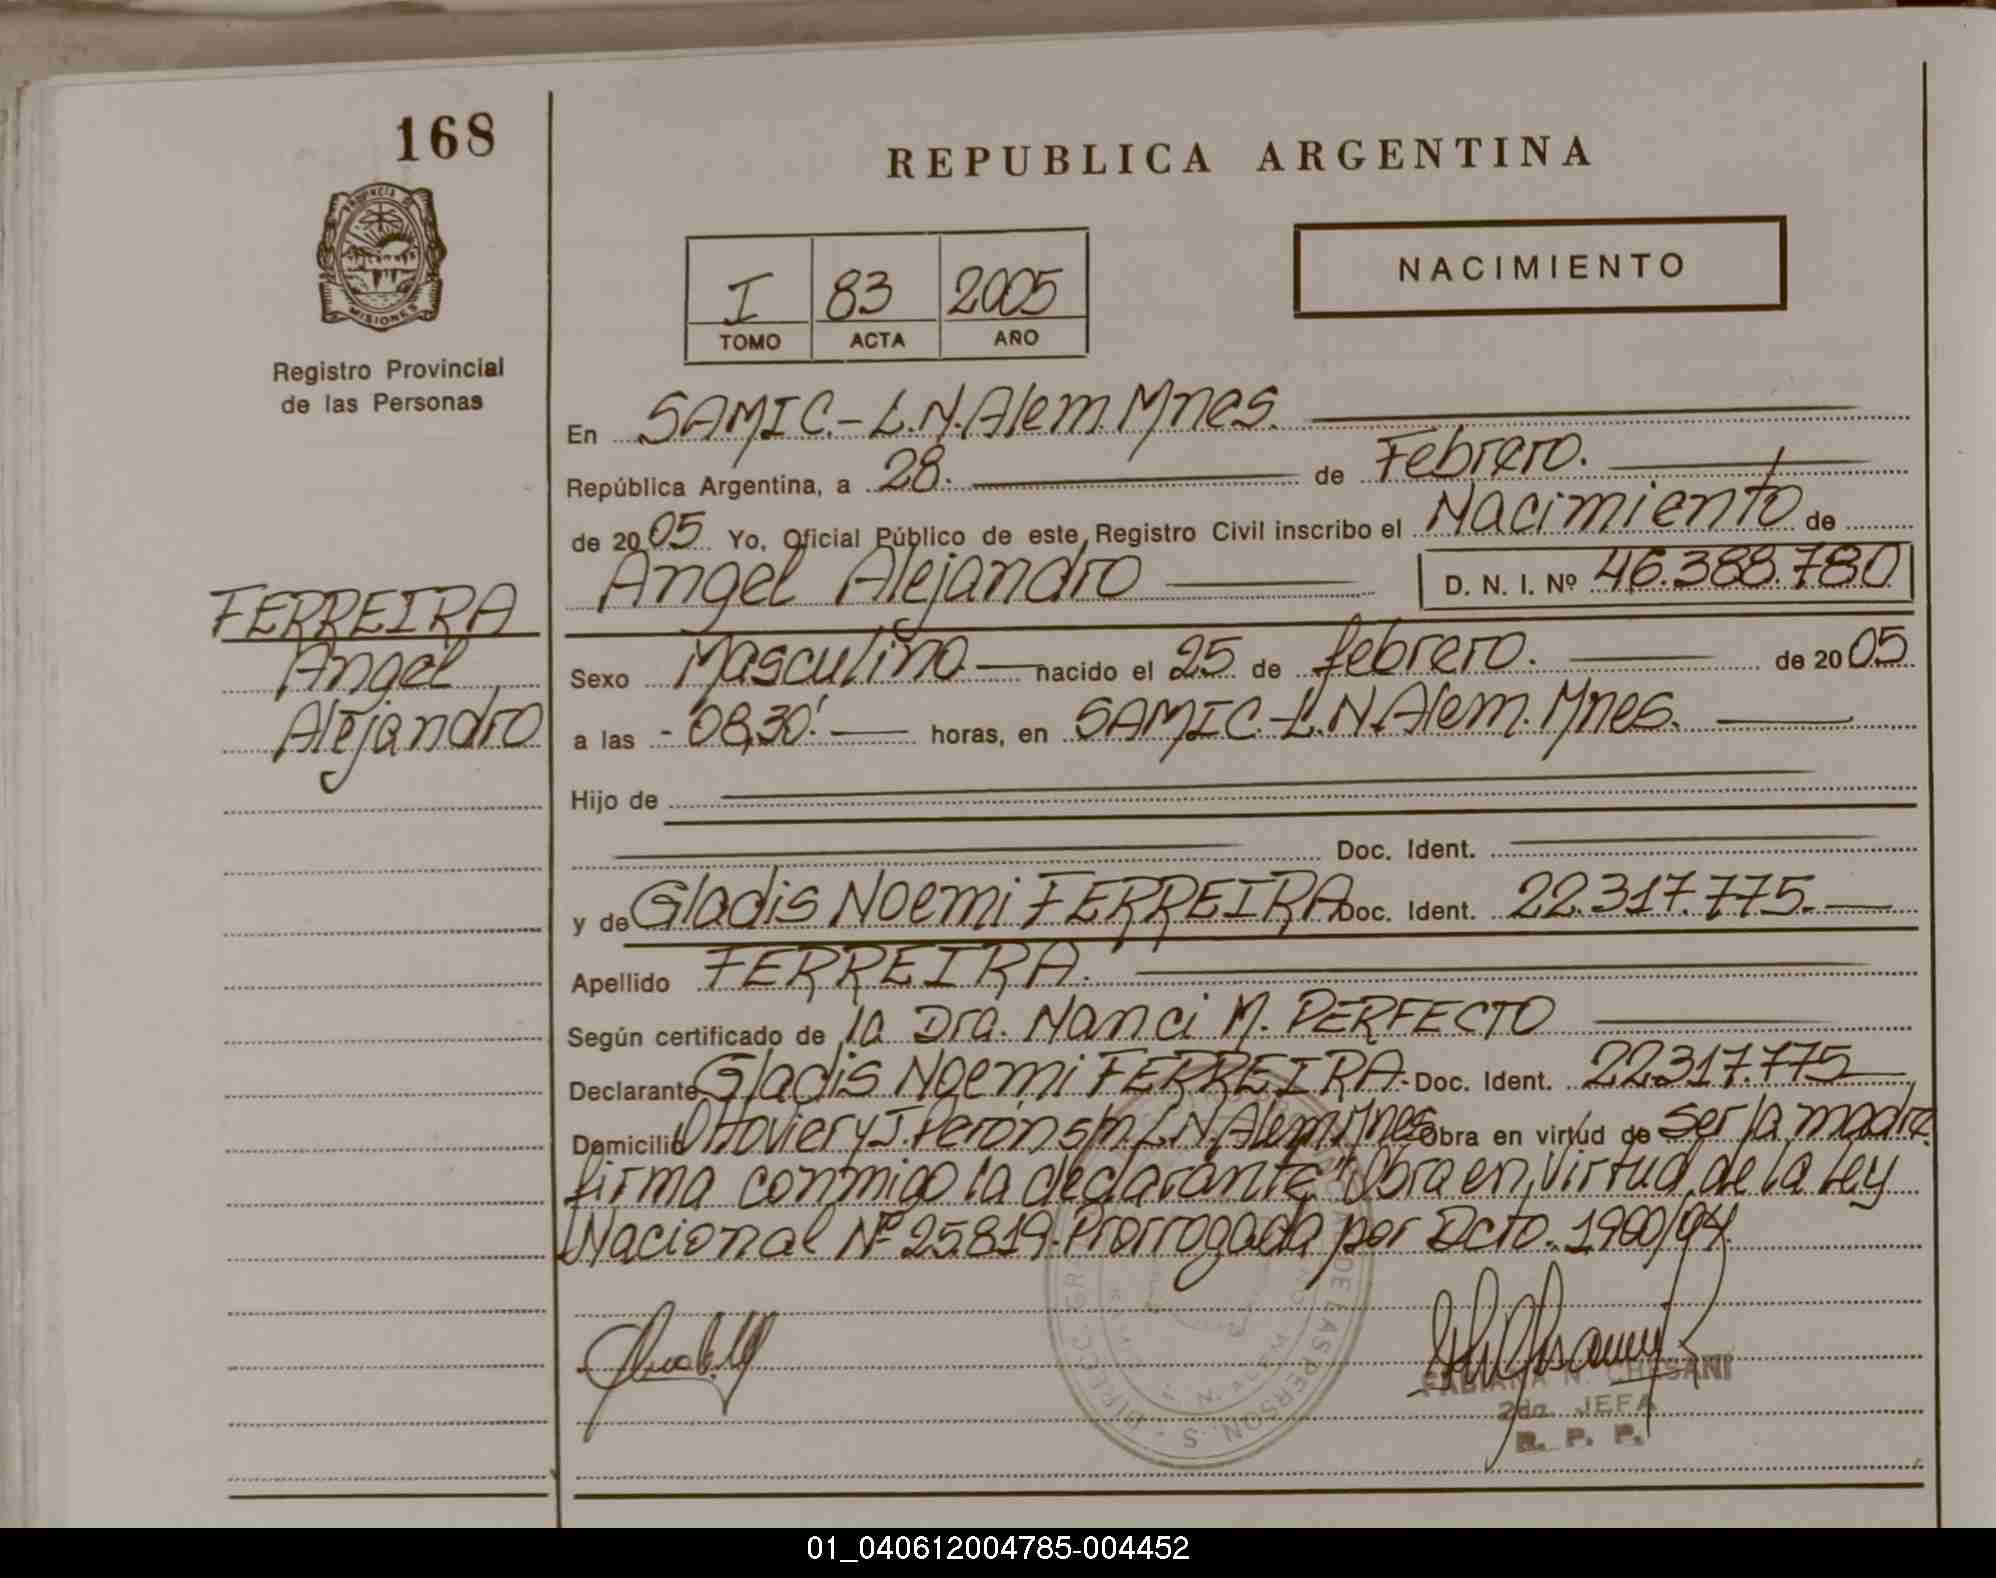 168
REPUBLICA ARGENTINA
PROVINCIA DE
MISIONES
Registro Provincial
de las Personas
I 83 2005
TOMO ACTA AÑO
NACIMIENTO
En SAMIC.- L.N.Alem.Mnes.
República Argentina, a 28. de Febrero.
de 2005 Yo, Oficial Público de este Registro Civil inscribo el Nacimiento de
Angel Alejandro D. N. I. Nº 46.388.780
FERREIRA
Angel
Alejandro
Sexo Masculino nacido el 25 de febrero. de 2005
a las - 08,30'. horas, en SAMIC.-L.N.Alem. Mnes.
Hijo de
Doc. Ident.
y de Gladis Noemi FERREIRA Doc. Ident. 22.317.775.
Apellido FERREIRA.
Según certificado de la Dra. Nanci M. PERFECTO
Declarante Gladis Noemi FERREIRA.- Doc. Ident. 22.317.775
Domicilio y J. Perón s/n. L.N.Alem Mnes Obra en virtud de ser la madre.
firma conmigo la declarante" Obra en virtud de la Ley
Nacional Nº 25.819. Prorrogada por Dcto. 1900/04.
DE LAS PERSON.S
FABIANA N. CHESANI
2da. JEFA
R. P. P.
01_040612004785-004452